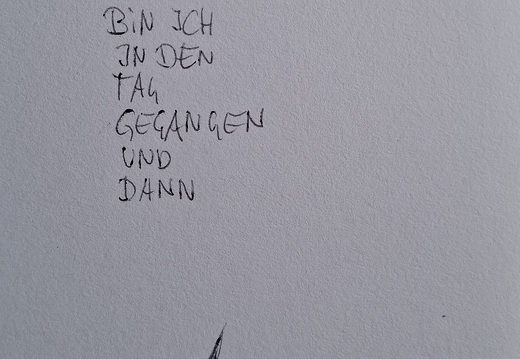 BIN ICH
IN DEN
TAG
GEGANGEN
UND
DANN